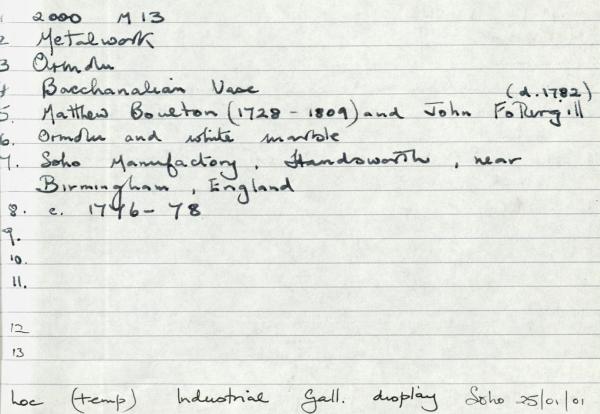 1 2000 M 13
2 Metalwork
3 Ormolu
4 Bacchanalian Vase (d.1782)
5. Matthew Boulton (1728 - 1809) and John Fothergill
6. Ormolu and white marble
7. Soho Manufactory, Handsworth, near
Birmingham, England
8. c. 1776 - 78
9.
10.
11.
12
13
Loc (temp) Industrial Gall. display Soho 25/01/01